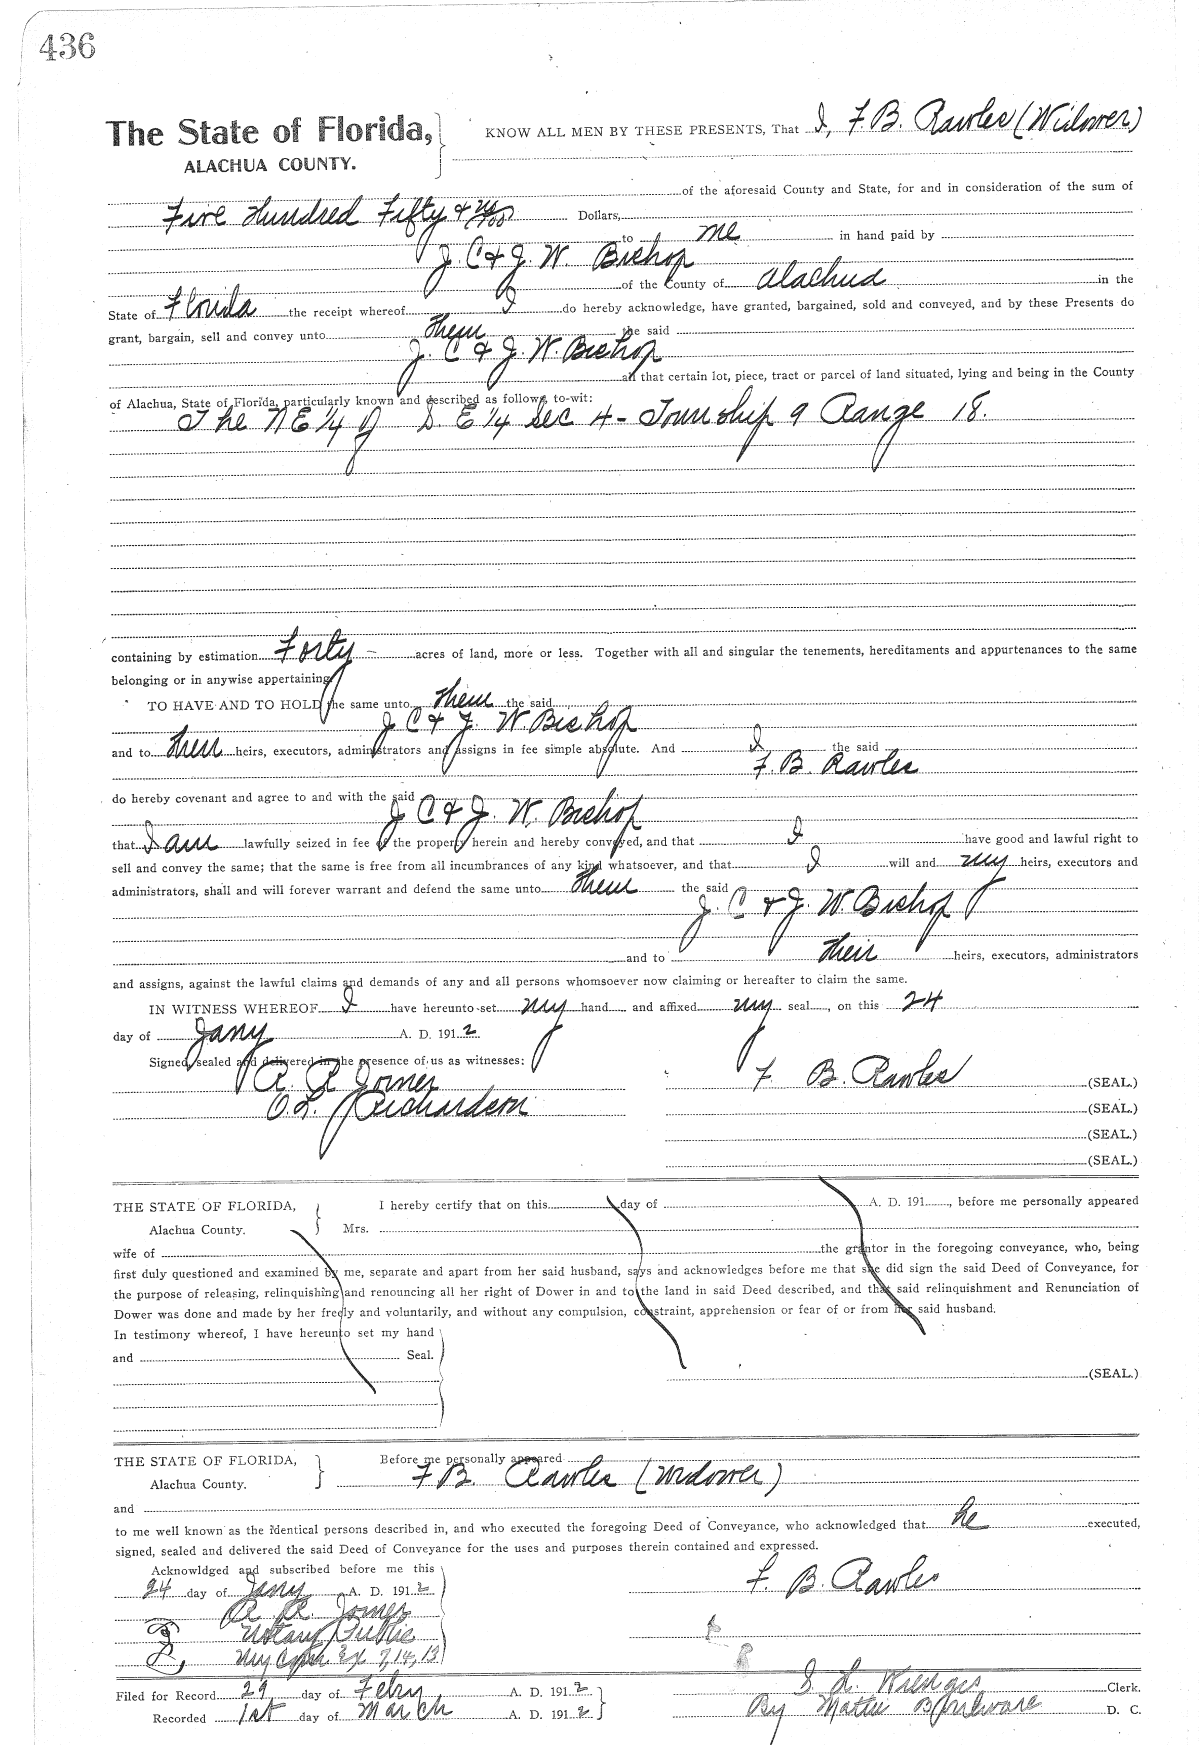 436
The State of Florida, KNOW ALL MEN BY THESE PRESENTS, That I, F. B. Rawles (Widower)
ALACHUA COUNTY.
of the aforesaid County and State, for and in consideration of the sum of
Five Hundred Fifty & no/100 Dollars,
to me in hand paid by
J. C & J. W. Bishop
of the County of Alachua in the
State of Florida the receipt whereof I do hereby acknowledge, have granted, bargained, sold and conveyed, and by these Presents do
grant, bargain, sell and convey unto them the said
J. C & J. W. Bishop
all that certain lot, piece, tract or parcel of land situated, lying and being in the County
of Alachua, State of Florida, particularly known and described as follows, to-wit:
The NE 1/4 of S. E 1/4 Sec 4 - Township 9 Range 18.
containing by estimation Forty acres of land, more or less. Together with all and singular the tenements, hereditaments and appurtenances to the same
belonging or in anywise appertaining
TO HAVE AND TO HOLD the same unto them the said
J C & J. W Bishop
and to their heirs, executors, administrators and assigns in fee simple absolute. And I the said
F. B. Rawles
do hereby covenant and agree to and with the said
J C & J. W. Bishop
that I am lawfully seized in fee of the property herein and hereby conveyed, and that I have good and lawful right to
sell and convey the same; that the same is free from all incumbrances of any kind whatsoever, and that I will and my heirs, executors and
administrators, shall and will forever warrant and defend the same unto them the said
J. C & J. W. Bishop
and to their heirs, executors, administrators
and assigns, against the lawful claims and demands of any and all persons whomsoever now claiming or hereafter to claim the same.
IN WITNESS WHEREOF I have hereunto set my hand and affixed my seal, on this 24
day of Jany A. D. 1912
Signed, sealed and delivered in the presence of us as witnesses:
F. B. Rawles (SEAL.)
O. L. Richardson (SEAL.)
(SEAL.)
(SEAL.)
THE STATE OF FLORIDA, I hereby certify that on this day of A. D. 191 , before me personally appeared
Alachua County. Mrs.
wife of the grantor in the foregoing conveyance, who, being
first duly questioned and examined by me, separate and apart from her said husband, says and acknowledges before me that she did sign the said Deed of Conveyance, for
the purpose of releasing, relinquishing and renouncing all her right of Dower in and to the land in said Deed described, and that said relinquishment and Renunciation of
Dower was done and made by her freely and voluntarily, and without any compulsion, constraint, apprehension or fear of or from her said husband.
In testimony whereof, I have hereunto set my hand
and Seal.
(SEAL.)
THE STATE OF FLORIDA, Before me personally appeared
Alachua County. F B. Rawles (Widower)
and
to me well known as the identical persons described in, and who executed the foregoing Deed of Conveyance, who acknowledged that he executed,
signed, sealed and delivered the said Deed of Conveyance for the uses and purposes therein contained and expressed.
Acknowldged and subscribed before me this
24 day of Jany A. D. 1912 F. B. Rawles
Notary Public
My Com Ex 7,14,13
Clerk.
Filed for Record 29 day of Febry A. D. 1912
Recorded 1st day of March A. D. 1912 By Mattie D. C.